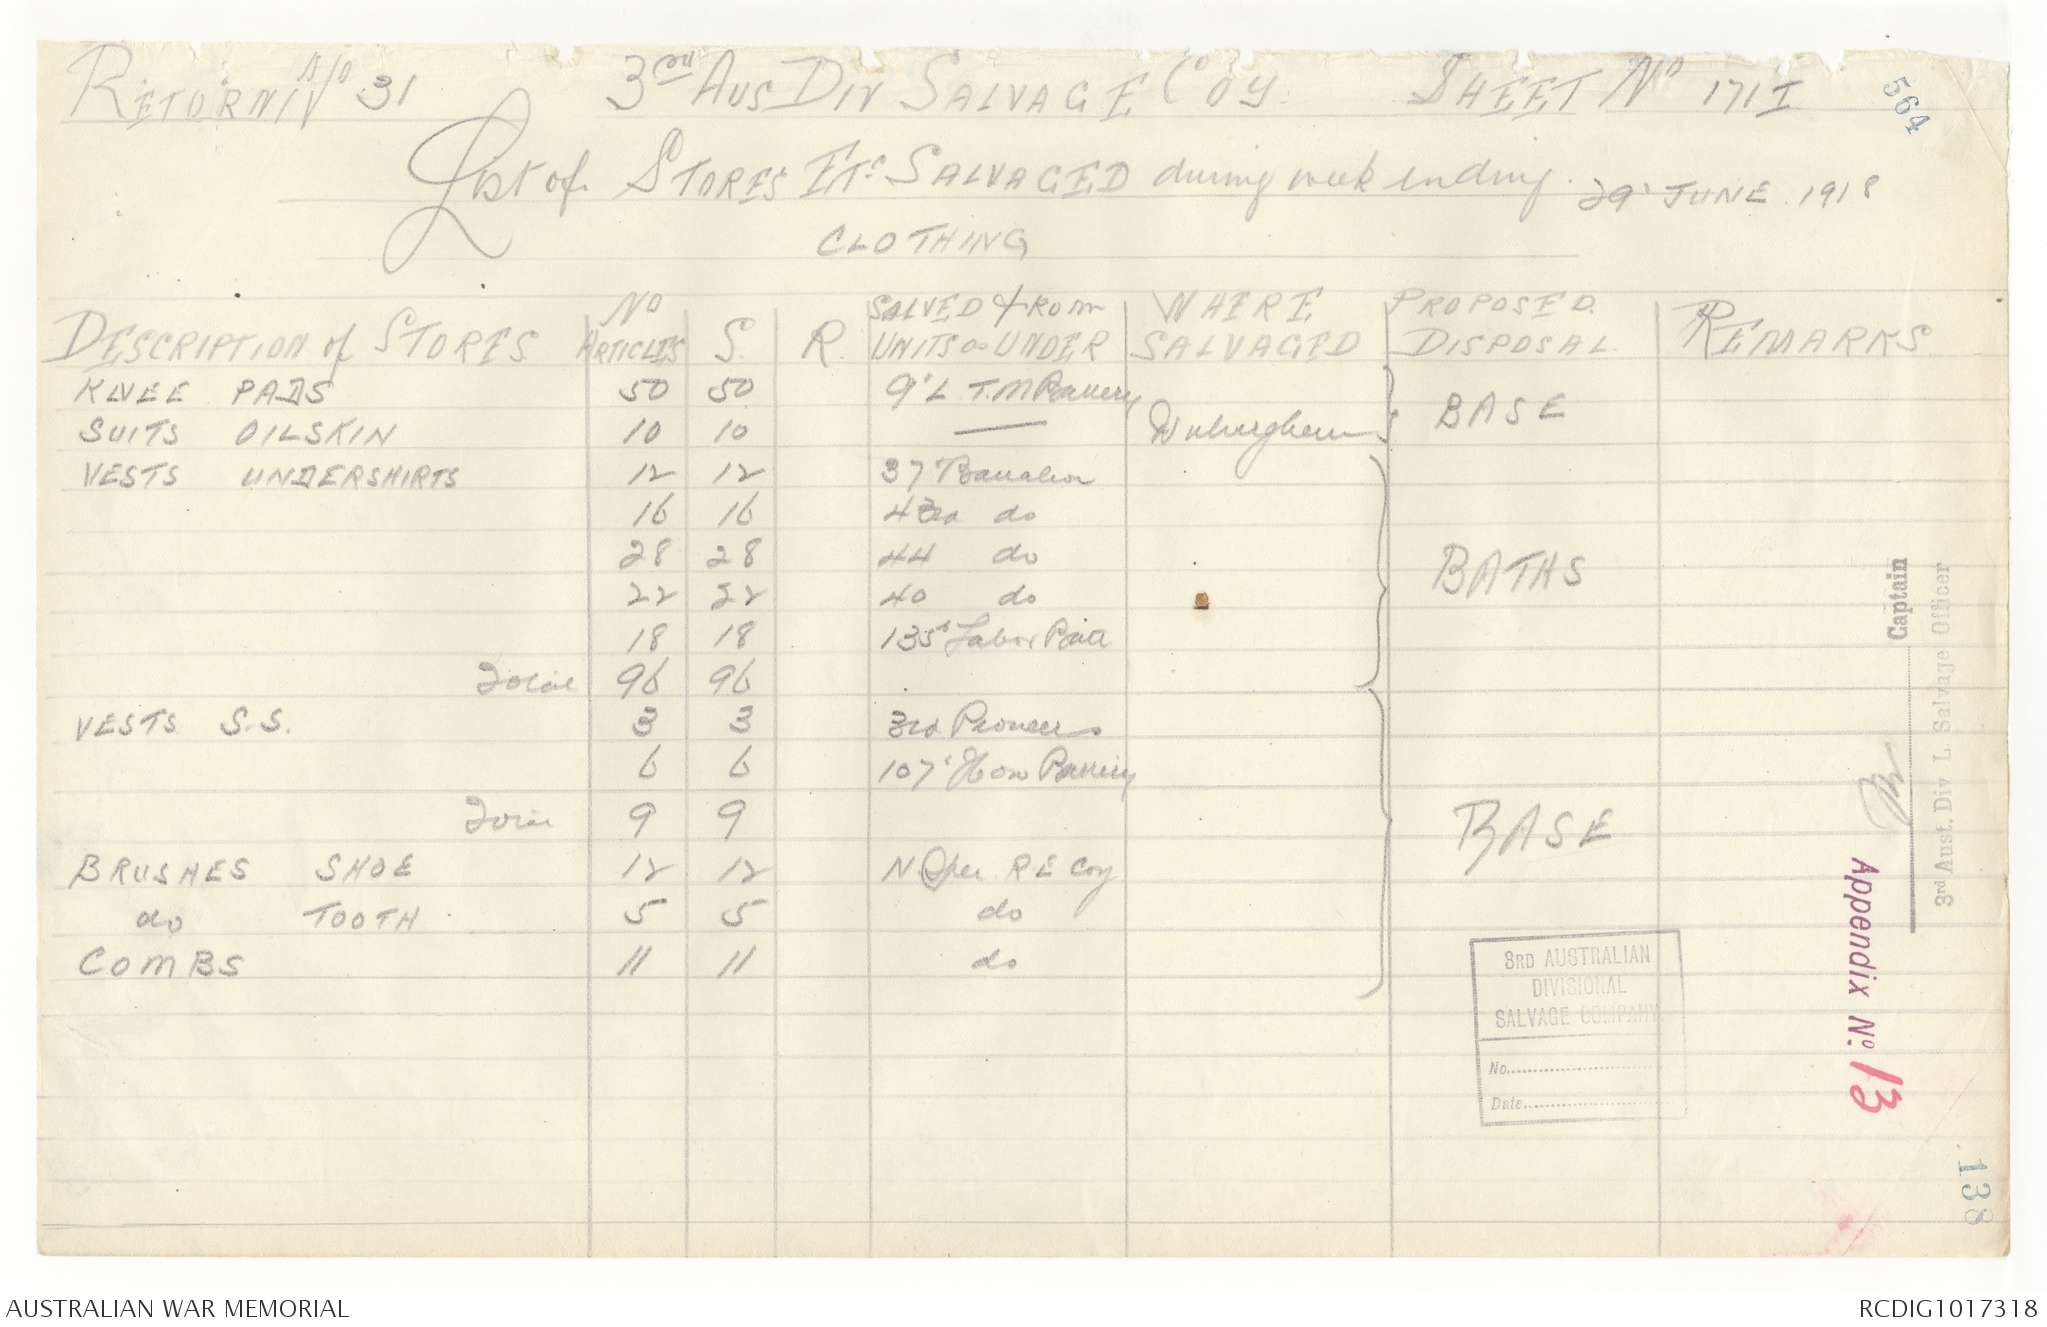 RETURN No 31 3rd AUS DIV SALVAGE COY SHEET No 171I
564
List of STORES Etc SALVAGED during week ending 29' JUNE 1918
CLOTHING
DESCRIPTION of STORES No ARTICLES S. R. SALVED FROM UNITS as UNDER WHERE SALVAGED PROPOSED DISPOSAL REMARKS
KNEE PADS 50 50 9'L T.M Battery
SUITS OILSKIN 10 10 — BASE
VESTS UNDERSHIRTS 12 12 37 Battalion
16 16 43rd do
28 28 44 do BATHS
22 22 40 do
18 18 135th Labor Batt
Total 96 96
VESTS S.S. 3 3 3rd Pioneers
6 6 107' How Battery
Total 9 9 BASE
BRUSHES SHOE 12 12 N Oper R E Coy
do TOOTH 5 5 do
COMBS 11 11 do
Captain
3rd Aust. Div L. Salvage Officer
Appendix No. 13
3RD AUSTRALIAN
DIVISIONAL
SALVAGE COMPANY.
No.
Date
138
AUSTRALIAN WAR MEMORIAL RCDIG1017318